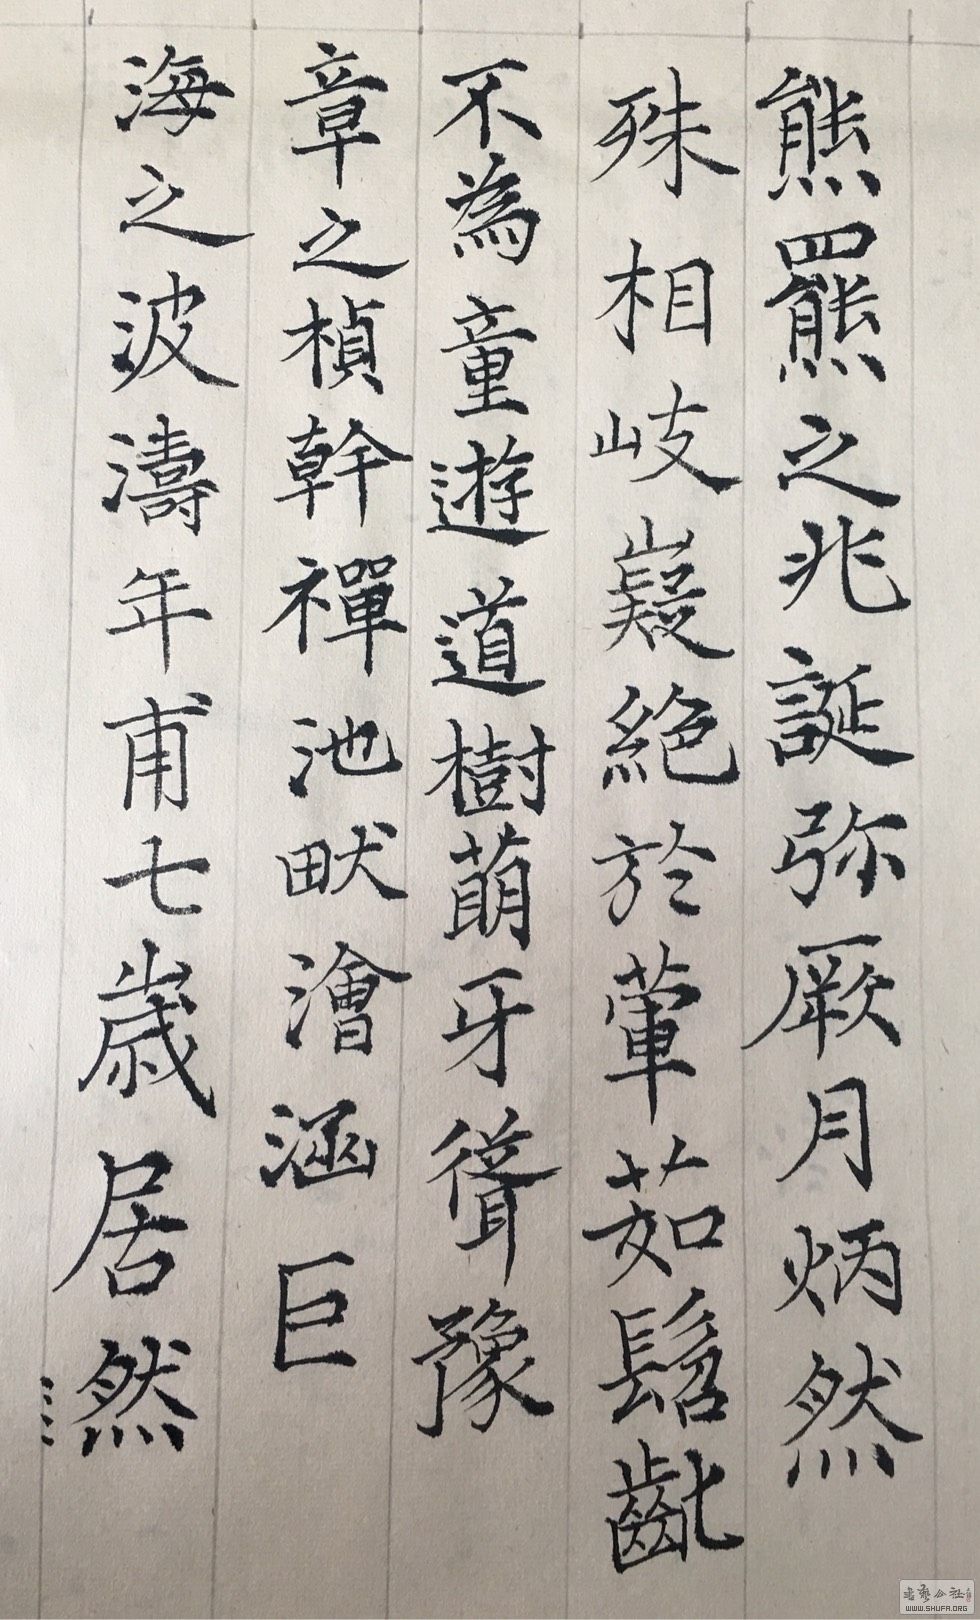 熊羆之兆誕弥厥月炳然
殊相岐嶷絕於葷茹髫齔
不為童遊道樹萌牙聳豫
章之楨幹禪池畎澮涵巨
海之波濤年甫七歲居然
WWW.SHUFA.ORG